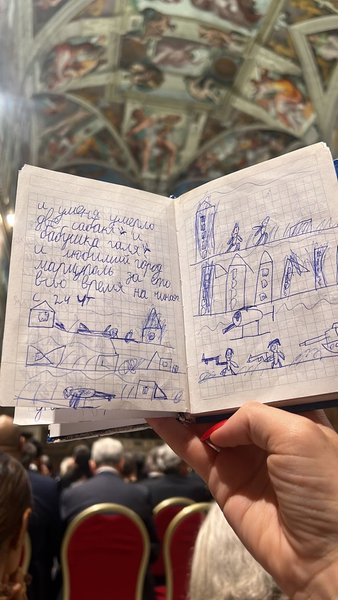 и уменя умерло
две сабаки и
бабушка галя и
и любимий город
мариуполь за ето
все время на чиная
с 24 чт